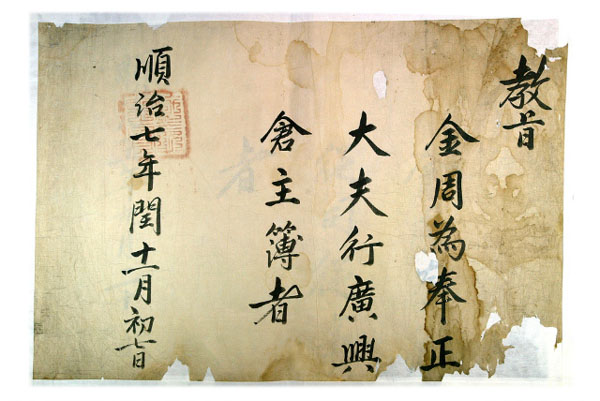 教旨
金周為奉正
大夫行廣興
倉主簿者
順治七年閏十一月初七日